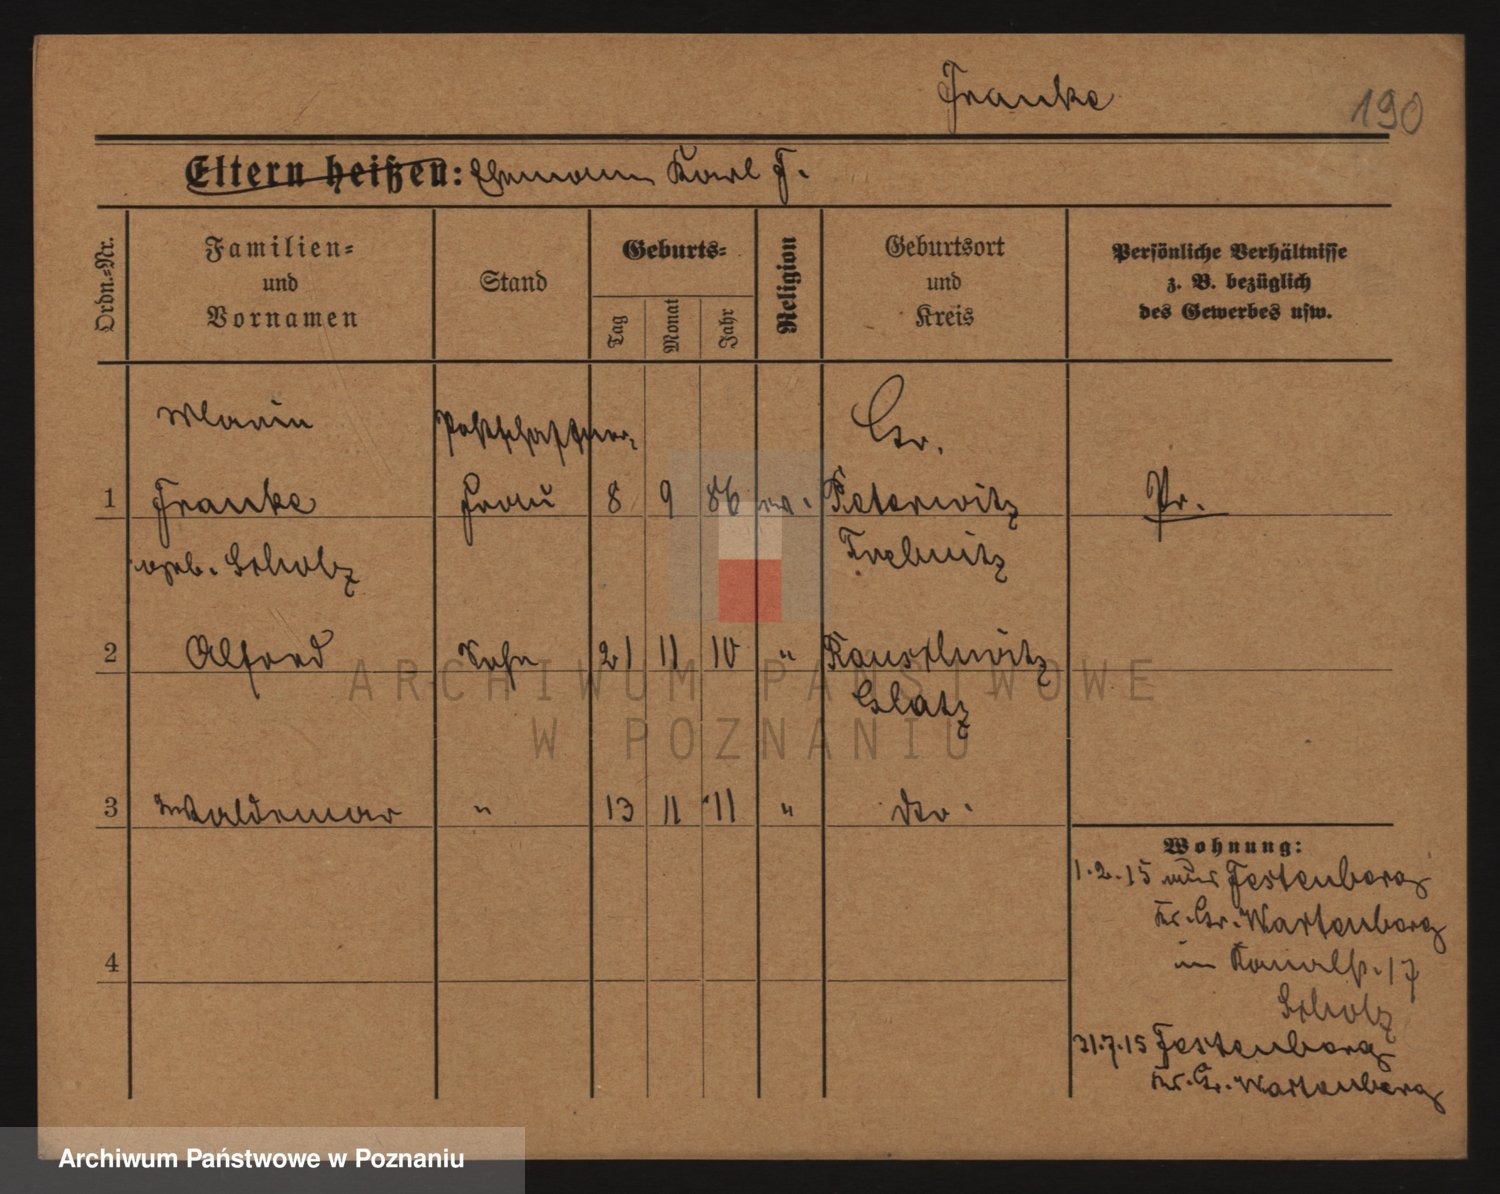 Franke
190
Eltern heißen: Ehemann Karl F.
Ordn.-Nr.
Familien-
und
Vornamen
Stand
Geburts-
Tag
Monat
Jahr
Religion
Geburtsort
und
Kreis
Persönliche Verhältnisse
z. B. bezüglich
des Gewerbes usw.
Maria Postschaffner- Gr.
1 Franke Frau 8 9 86 ev. Peterwitz Pr.
geb. Scholz Trebnitz
2 Alfred Sohn 21 11 10 "
Glatz
3 Waldemar " 13 11 11 " dto.
Wohnung:
1.2.15 aus Festenberg
Kr. Gr. Wartenberg
in Kanalstr. 17
Scholz
4
31.7.15 Festenberg
Kr. Gr. Wartenberg
ARCHIWUM PAŃSTWOWE
W POZNANIU
Archiwum Państwowe w Poznaniu